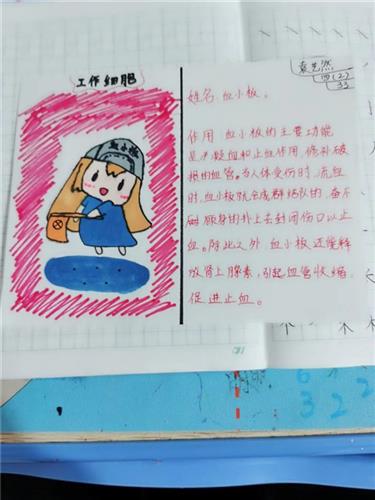 袁艺然
四(2)
33
工作细胞
血小板
姓名:血小板。
作用:血小板的主要功能
是凝血和止血作用,修补破
损的血管。当人体受伤时,流血
时,血小板就会成群结队的,奋不
顾身的扑上去封闭伤口以止
血。除此之外,血小板还能释
放肾上腺素,引起血管收缩,
促进止血。
6
3 2 2